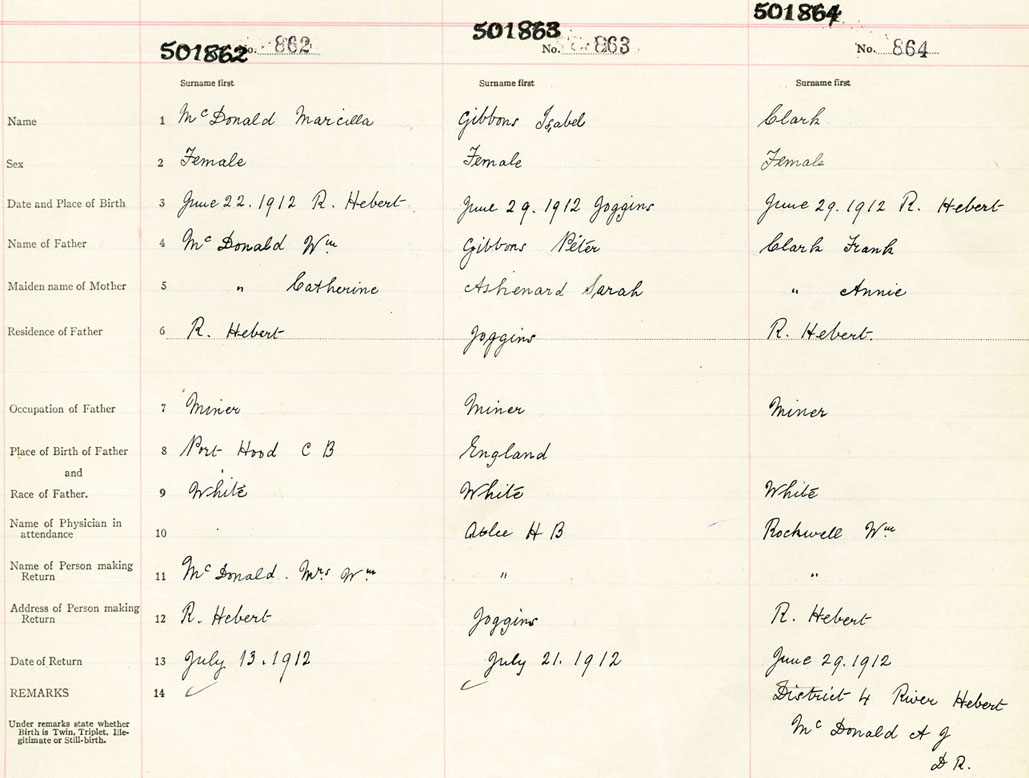 501862 No. 862 501863 No. 863 501864 No. 864
Surname first Surname first Surname first
Name 1 McDonald Marcilla Gibbons Isabel Clark
Sex 2 Female Female Female
Date and Place of Birth 3 June 22. 1912 R. Hebert June 29. 1912 Joggins June 29. 1912 R. Hebert
Name of Father 4 McDonald Wm Gibbons Peter Clark Frank
Maiden name of Mother 5 " Catherine Ashenard Sarah " Annie
Residence of Father 6 R. Hebert Joggins R. Hebert.
Occupation of Father 7 Miner Miner Miner
Place of Birth of Father 8 Port Hood C B England
and
Race of Father. 9 White White White
Name of Physician in
attendance 10 H B Rockwell Wm
Name of Person making
Return 11 McDonald. Mrs Wm " "
Address of Person making
Return 12 R. Hebert Joggins R. Hebert
Date of Return 13 July 13. 1912 July 21. 1912 June 29. 1912
REMARKS 14 District 4 River Hebert
Under remarks state whether
Birth is Twin, Triplet, Ille-
gitimate or Still-birth.
McDonald A J
D R.